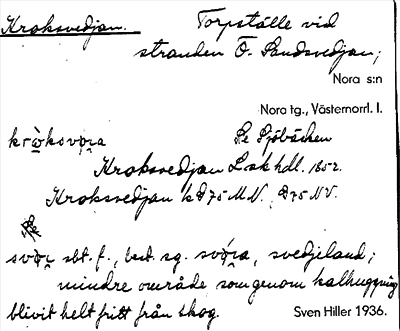 Kroksvedjan. Torpställe vid
stranden Ö. Sandsvedjan;
Nora s:n
Nora tg., Västernorrl. l.
kròksvo̧ra Se Sjöbäcken
Kroksvedjan Lsk hdl. 1852.
Kroksvedjan k D75 M.V. D75 N.V.
Se
svo̧r sbt. f., best. sg. svó̧ra, svedjeland;
mindre område som genom kalhuggning
blivit helt fritt från skog.
Sven Hiller 1936.